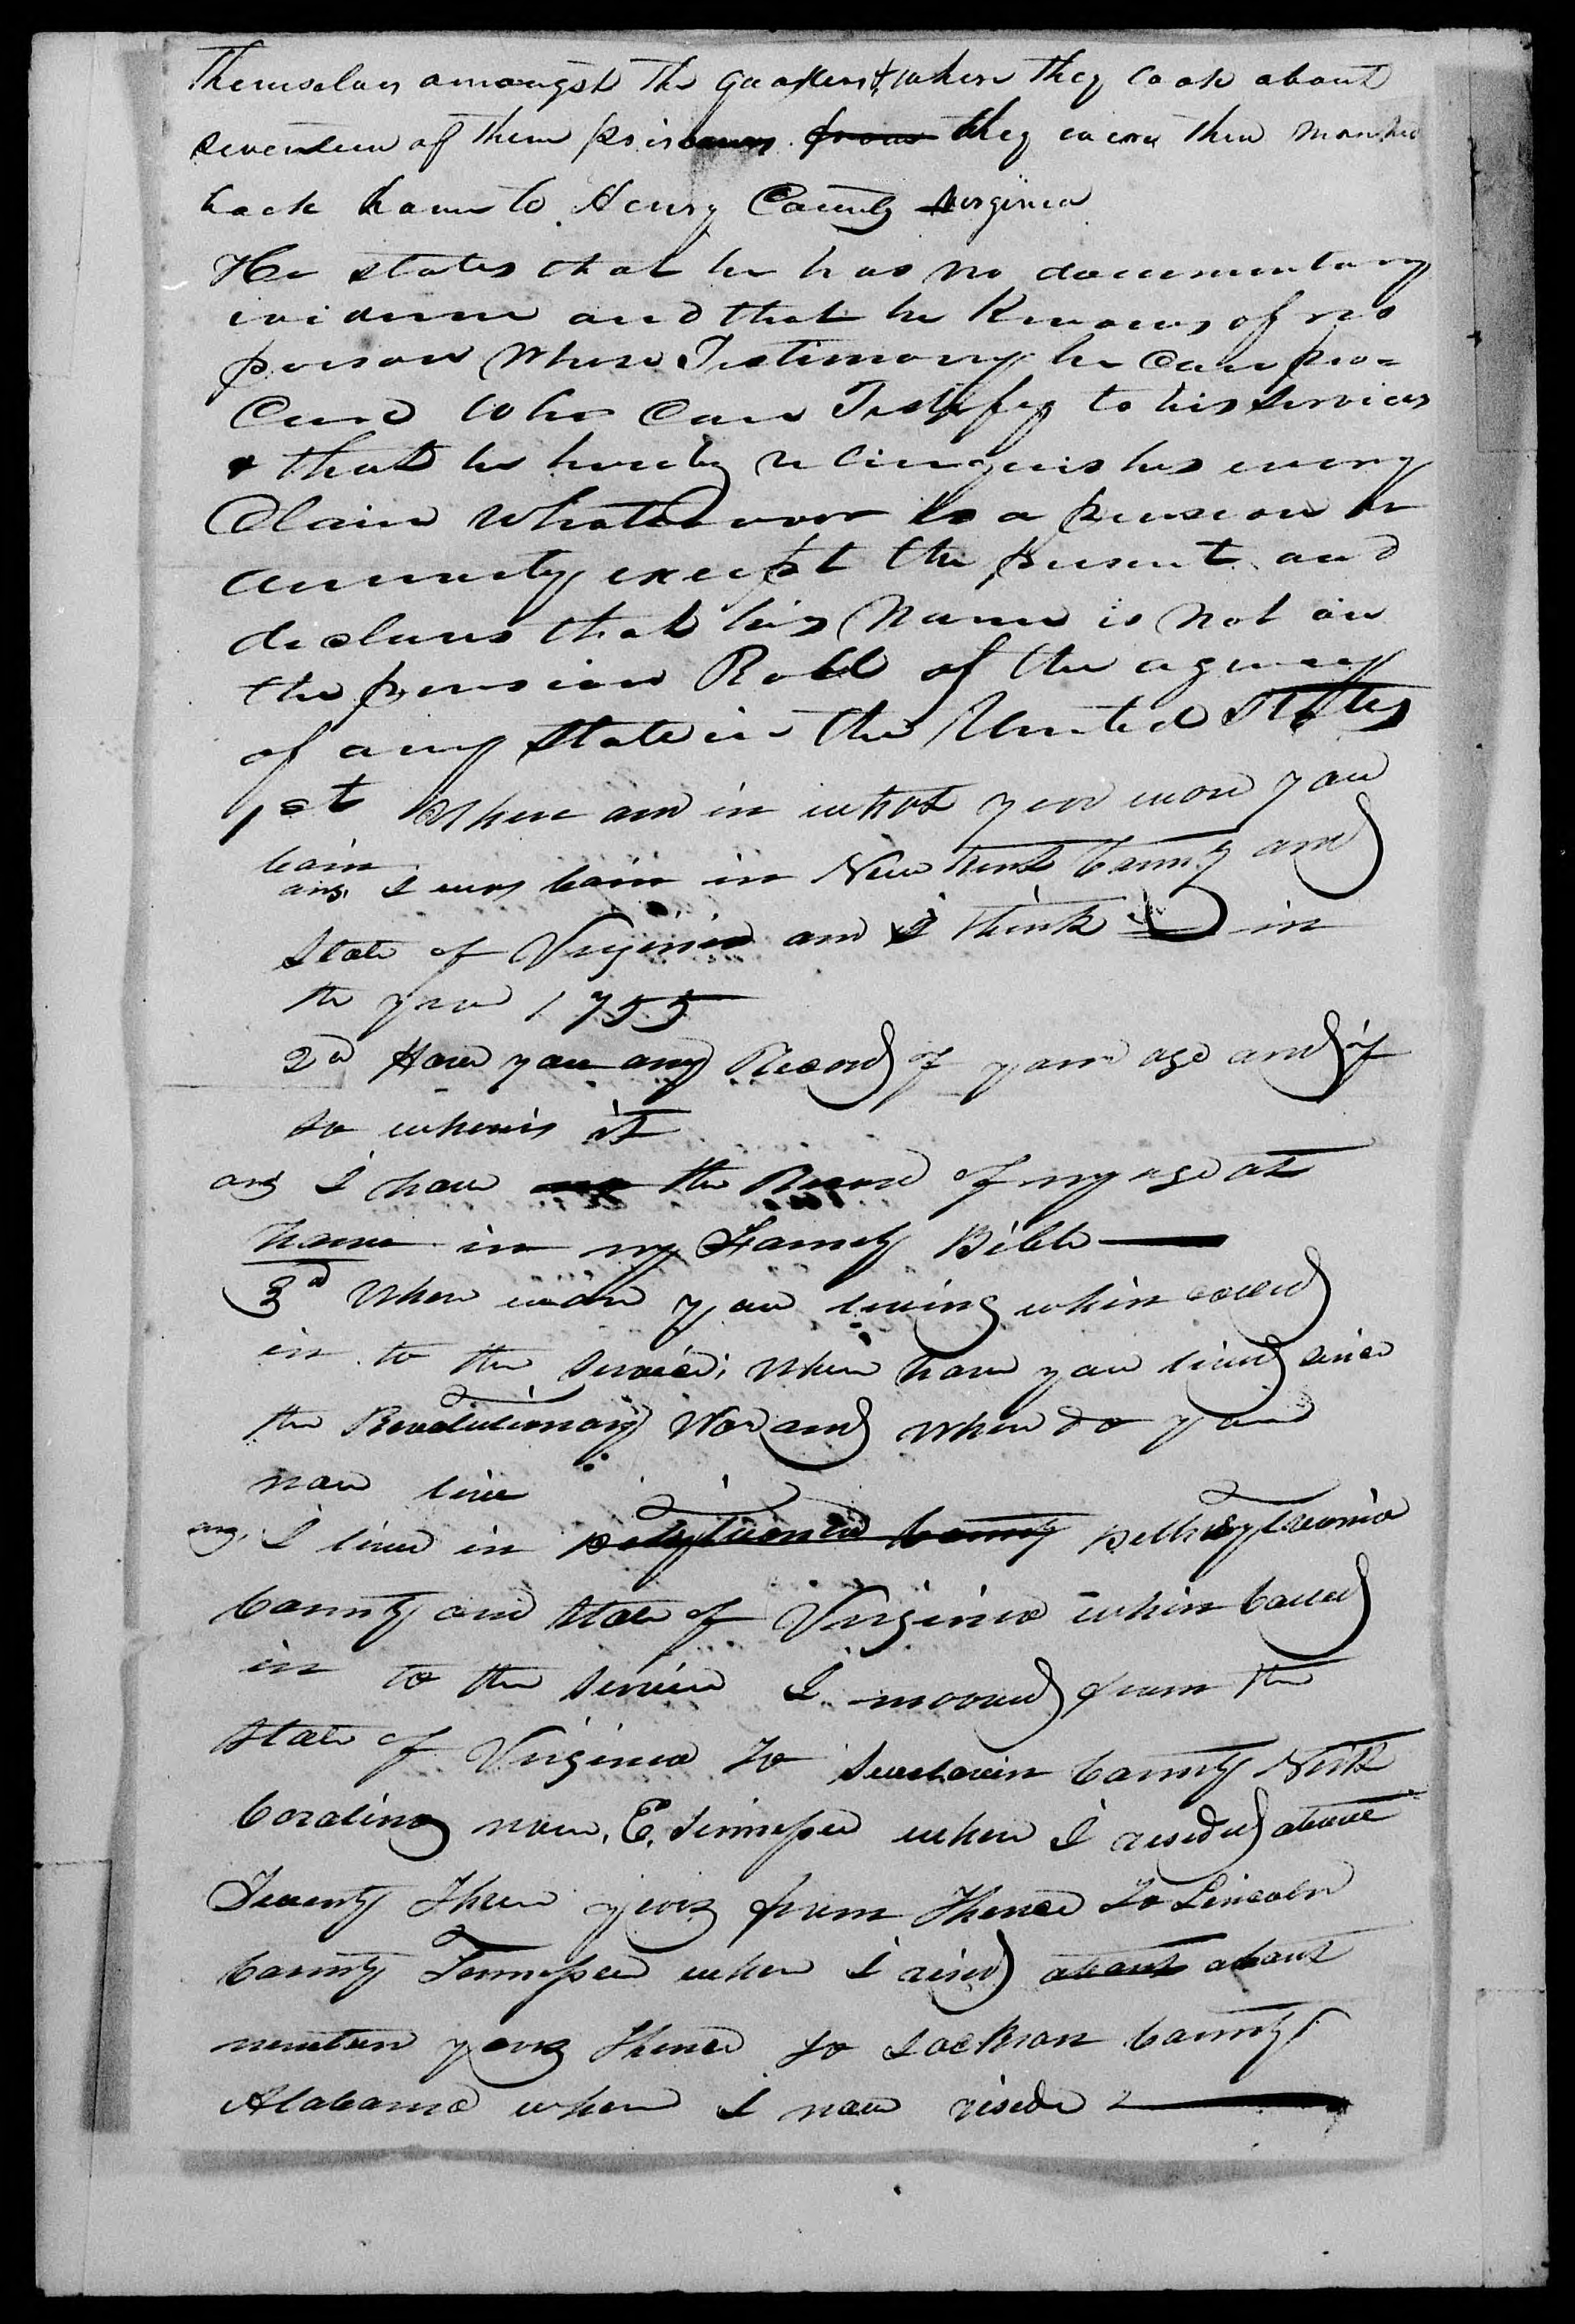 themselves amongst the Quakers & where they took about
seventeen of them prisoners from they were then marched
back home to Henry County Virginia
He states that he has no documentary
evidence and that he knows of no
person whose Testimony he can pro=
cure who can Testify to his services
& that he hereby relinquishes every
Claim whatever to a pension or
annuity except the present and
declares that his name is not on
the pension Roll of the agency
of any State in the United States
1st Where and in what year were you
born
ans. I was born in New Kent County and
State of Virginia and I think in
the year 1755
2d Have you any Record of your age and if
so where is it
ans I have the Record of my age at
home in my Family Bible
3d Where were you living when called
in to the service; where have you lived since
the Revolutionary War and where do you
now live
ans. I lived in Pittsylvania County Pittsylvania
County and State of Virginia when called
in to the service I mooved from the
State of Virginia to County North
Carolina now E. Tennessee where I resided about
Twenty Three years from Thence to Lincoln
County Tennessee where I resid about about
nineteen years thence to Jackson County
Alabama where I now reside